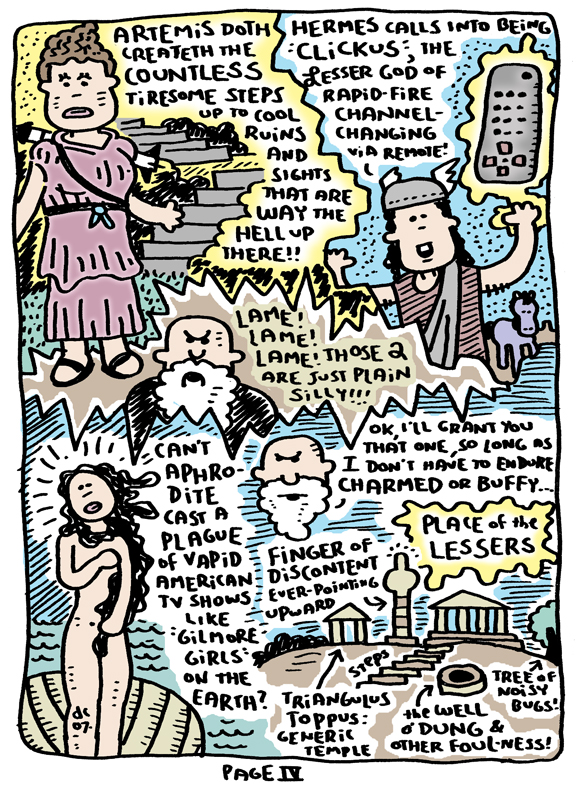 ARTEMIS DOTH
CREATETH THE
COUNTLESS
TIRESOME STEPS
UP TO COOL
RUINS
AND
SIGHTS
THAT ARE
WAY THE
HELL UP
THERE!!
HERMES CALLS INTO BEING
"CLICKUS", THE
LESSER GOD OF
RAPID-FIRE
CHANNEL-
CHANGING
VIA REMOTE!
LAME!
LAME!
LAME! THOSE 2
ARE JUST PLAIN
SILLY!!!
CAN'T
APHRO-
DITE
CAST A
PLAGUE
OF VAPID
AMERICAN
TV SHOWS
LIKE
"GILMORE
GIRLS"
ON THE
EARTH?
OK, I'LL GRANT YOU
THAT ONE, SO LONG AS
I DON'T HAVE TO ENDURE
CHARMED OR BUFFY...
PLACE OF the
LESSERS
FINGER OF
DISCONTENT
EVER-POINTING
UPWARD
STEPS
TRIANGULUS
TOPPUS:
GENERIC
TEMPLE
the WELL
O' DUNG &
OTHER FOUL-NESS!
TREE OF
NOISY
BUGS!
dc
07.
PAGE IV